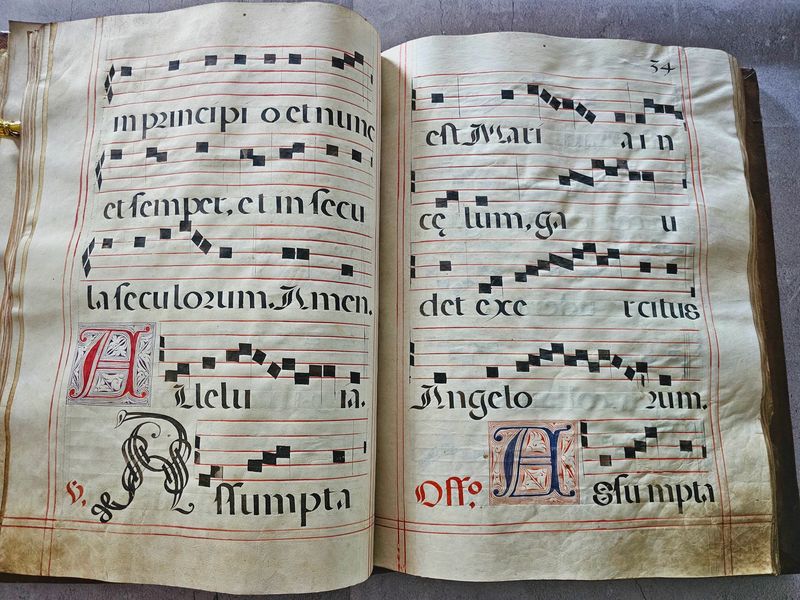 in principi o et nunc
et ſemper, et in ſecu
la ſeculorum. Amen.
Allelu ia.
℣. Aſſumpta
34
eſt Mari a in
cę lum, ga u
det exe rcitus
Angelo rum.
Offo. Aſsumpta